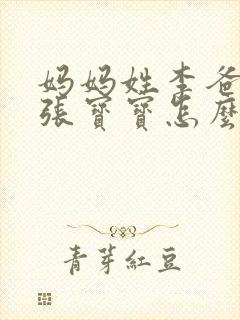 妈妈姓李爸
張寶寶怎麼
青芽紅豆